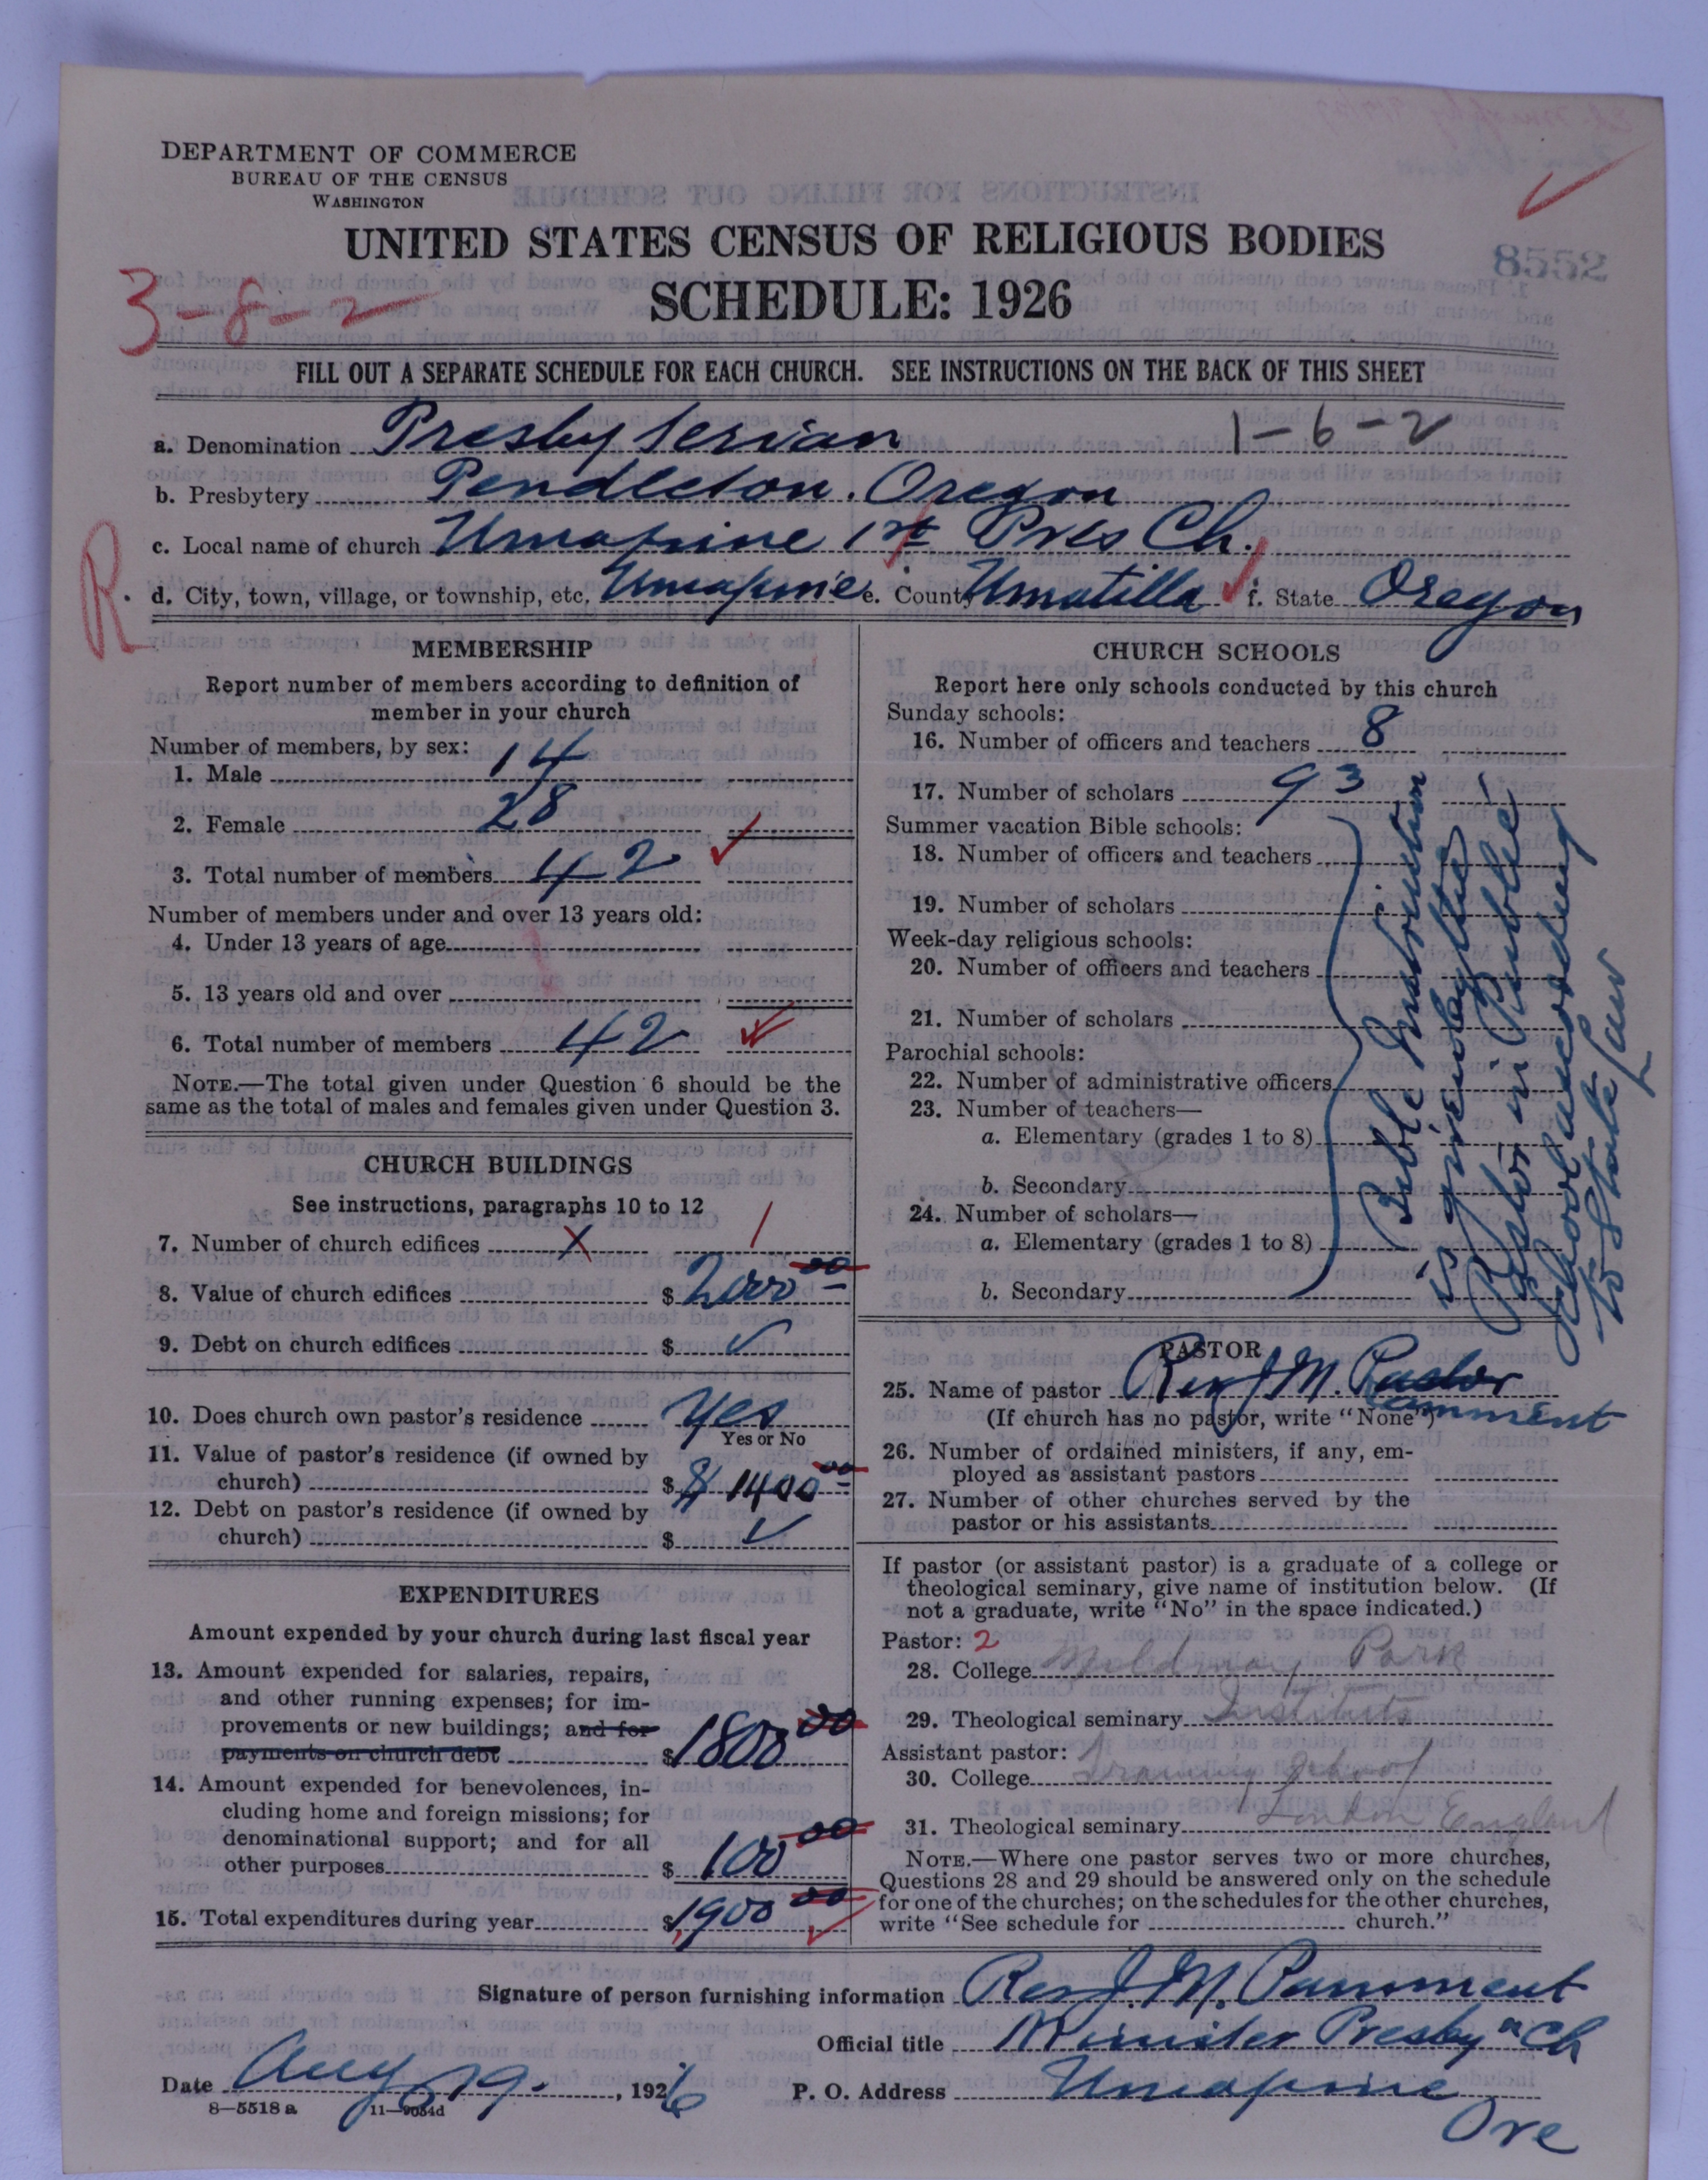 DEPARTMENT OF COMMERCE
BUREAU OF THE CENSUS
WASHINGTON
UNITED STATES CENSUS OF RELIGIOUS BODIES
8552
SCHEDULE: 1926
3-8-2
FILL OUT A SEPARATE SCHEDULE FOR EACH CHURCH. SEE INSTRUCTIONS ON THE BACK OF THIS SHEET
a. Denomination Presbyterian 1-6-2
b. Presbytery Pendleton. Oregon
c. Local name of church Umapine 1st Pres Ch.
R
d. City, town, village, or township, etc. Umapine e. County Umatilla f. State Oregon
MEMBERSHIP
Report number of members according to definition of
member in your church
Number of members, by sex:
1. Male 14
2. Female 28
3. Total number of members 42
Number of members under and over 13 years old:
4. Under 13 years of age
5. 13 years old and over
6. Total number of members 42
NOTE.—The total given under Question 6 should be the
same as the total of males and females given under Question 3.
CHURCH BUILDINGS
See instructions, paragraphs 10 to 12
7. Number of church edifices X 1
8. Value of church edifices $ 2000 00
9. Debt on church edifices $
10. Does church own pastor's residence Yes
Yes or No
11. Value of pastor's residence (if owned by
church) $ $ 1400 00
12. Debt on pastor's residence (if owned by
church) $
EXPENDITURES
Amount expended by your church during last fiscal year
13. Amount expended for salaries, repairs,
and other running expenses; for im-
provements or new buildings; and for
payments on church debt $ 1800 00
14. Amount expended for benevolences, in-
cluding home and foreign missions; for
denominational support; and for all
other purposes $ 100 00
15. Total expenditures during year $ 1900 00
CHURCH SCHOOLS
Report here only schools conducted by this church
Sunday schools:
16. Number of officers and teachers 8
17. Number of scholars 93
Summer vacation Bible schools:
18. Number of officers and teachers
19. Number of scholars
Week-day religious schools:
20. Number of officers and teachers
21. Number of scholars
Parochial schools:
22. Number of administrative officers
23. Number of teachers—
a. Elementary (grades 1 to 8)
b. Secondary
24. Number of scholars—
a. Elementary (grades 1 to 8)
b. Secondary
Bible Instruction
is given by the
Pastor in Public
School according
to State law
PASTOR
25. Name of pastor Rev J. M. Pastor
Pamment
(If church has no pastor, write "None")
26. Number of ordained ministers, if any, em-
ployed as assistant pastors
27. Number of other churches served by the
pastor or his assistants
If pastor (or assistant pastor) is a graduate of a college or
theological seminary, give name of institution below. (If
not a graduate, write "No" in the space indicated.)
Pastor: 2
28. College Mildmay Park
29. Theological seminary Institute
Assistant pastor:
30. College Training School
31. Theological seminary London England
NOTE.—Where one pastor serves two or more churches,
Questions 28 and 29 should be answered only on the schedule
for one of the churches; on the schedules for the other churches,
write "See schedule for church."
Signature of person furnishing information Rev J. M. Pamment
Official title Minister Presbyn Ch
Date Aug 19. , 1926 P. O. Address Umapine
Ore
8—5518 a 11—9034d